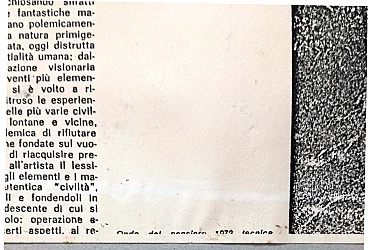 chiosando siffatti
e fantastiche ma-
ano polemicamen-
a natura primige-
ata, oggi distrutta
tialità umana; dal-
azione visionaria
venti più elemen-
si è volto a ri-
itroso le esperien-
elle più varie civil-
lontane e vicine,
lemica di rifiutare
ne fondate sul vuo-
di riacquisire pre-
all'artista il lessi-
gli elementi e i ma-
utentica "civiltà",
li e fondendoli in
descente di cui si
olo: operazione e-
erti aspetti, al re-
Onda del pensiero 1973 tecnica